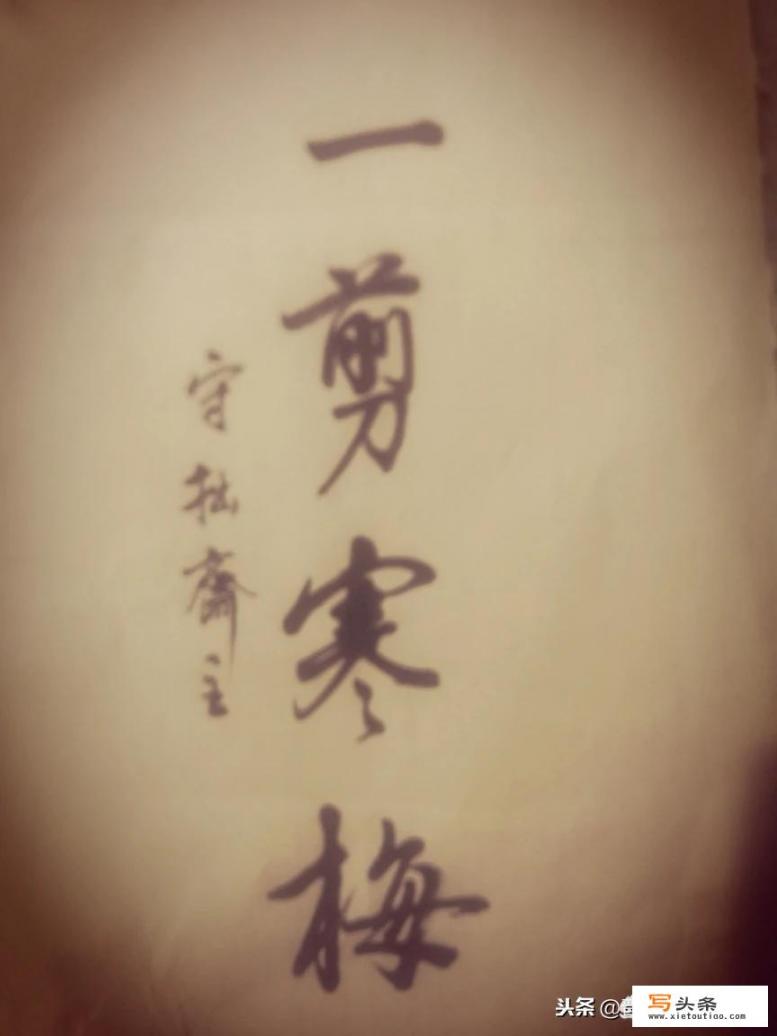 一剪寒梅
守拙斋主
头条 @
写头条
www.xietoutiao.com